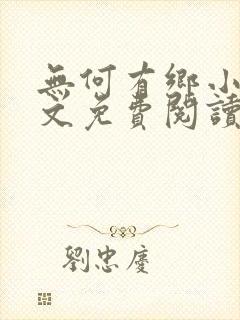 無何有鄉小
文免費閱讀
劉忠慶